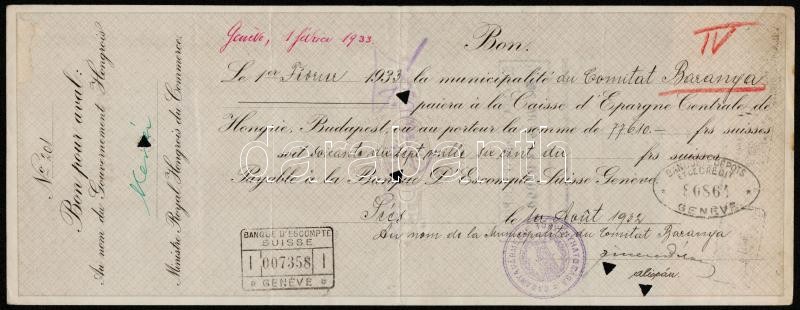 Genève, 1 février 1933
Bon.
IV
Le 1er Février 1933 la municipalité du Comitat Baranya
paiera à la Caisse d'Epargne Centrale de
Hongrie, Budapest, ou au porteur la somme de 77610.— frs suisses
soit soixante dix sept mille six cent dix frs suisses
Payable à la Banque d'Escompte Suisse Genève
Pécs le 1er Août 1932
Au nom de la Municipalité du Comitat Baranya
alispán.
No 201
Bon pour aval:
Au nom du Gouvernement Hongrois
Ministre Royal Hongrois du Commerce.
BANQUE D'ESCOMPTE
SUISSE
007358
GENÈVE
DÉPOTS
& DE CRÉDIT
GENÈVE
darabanth.com